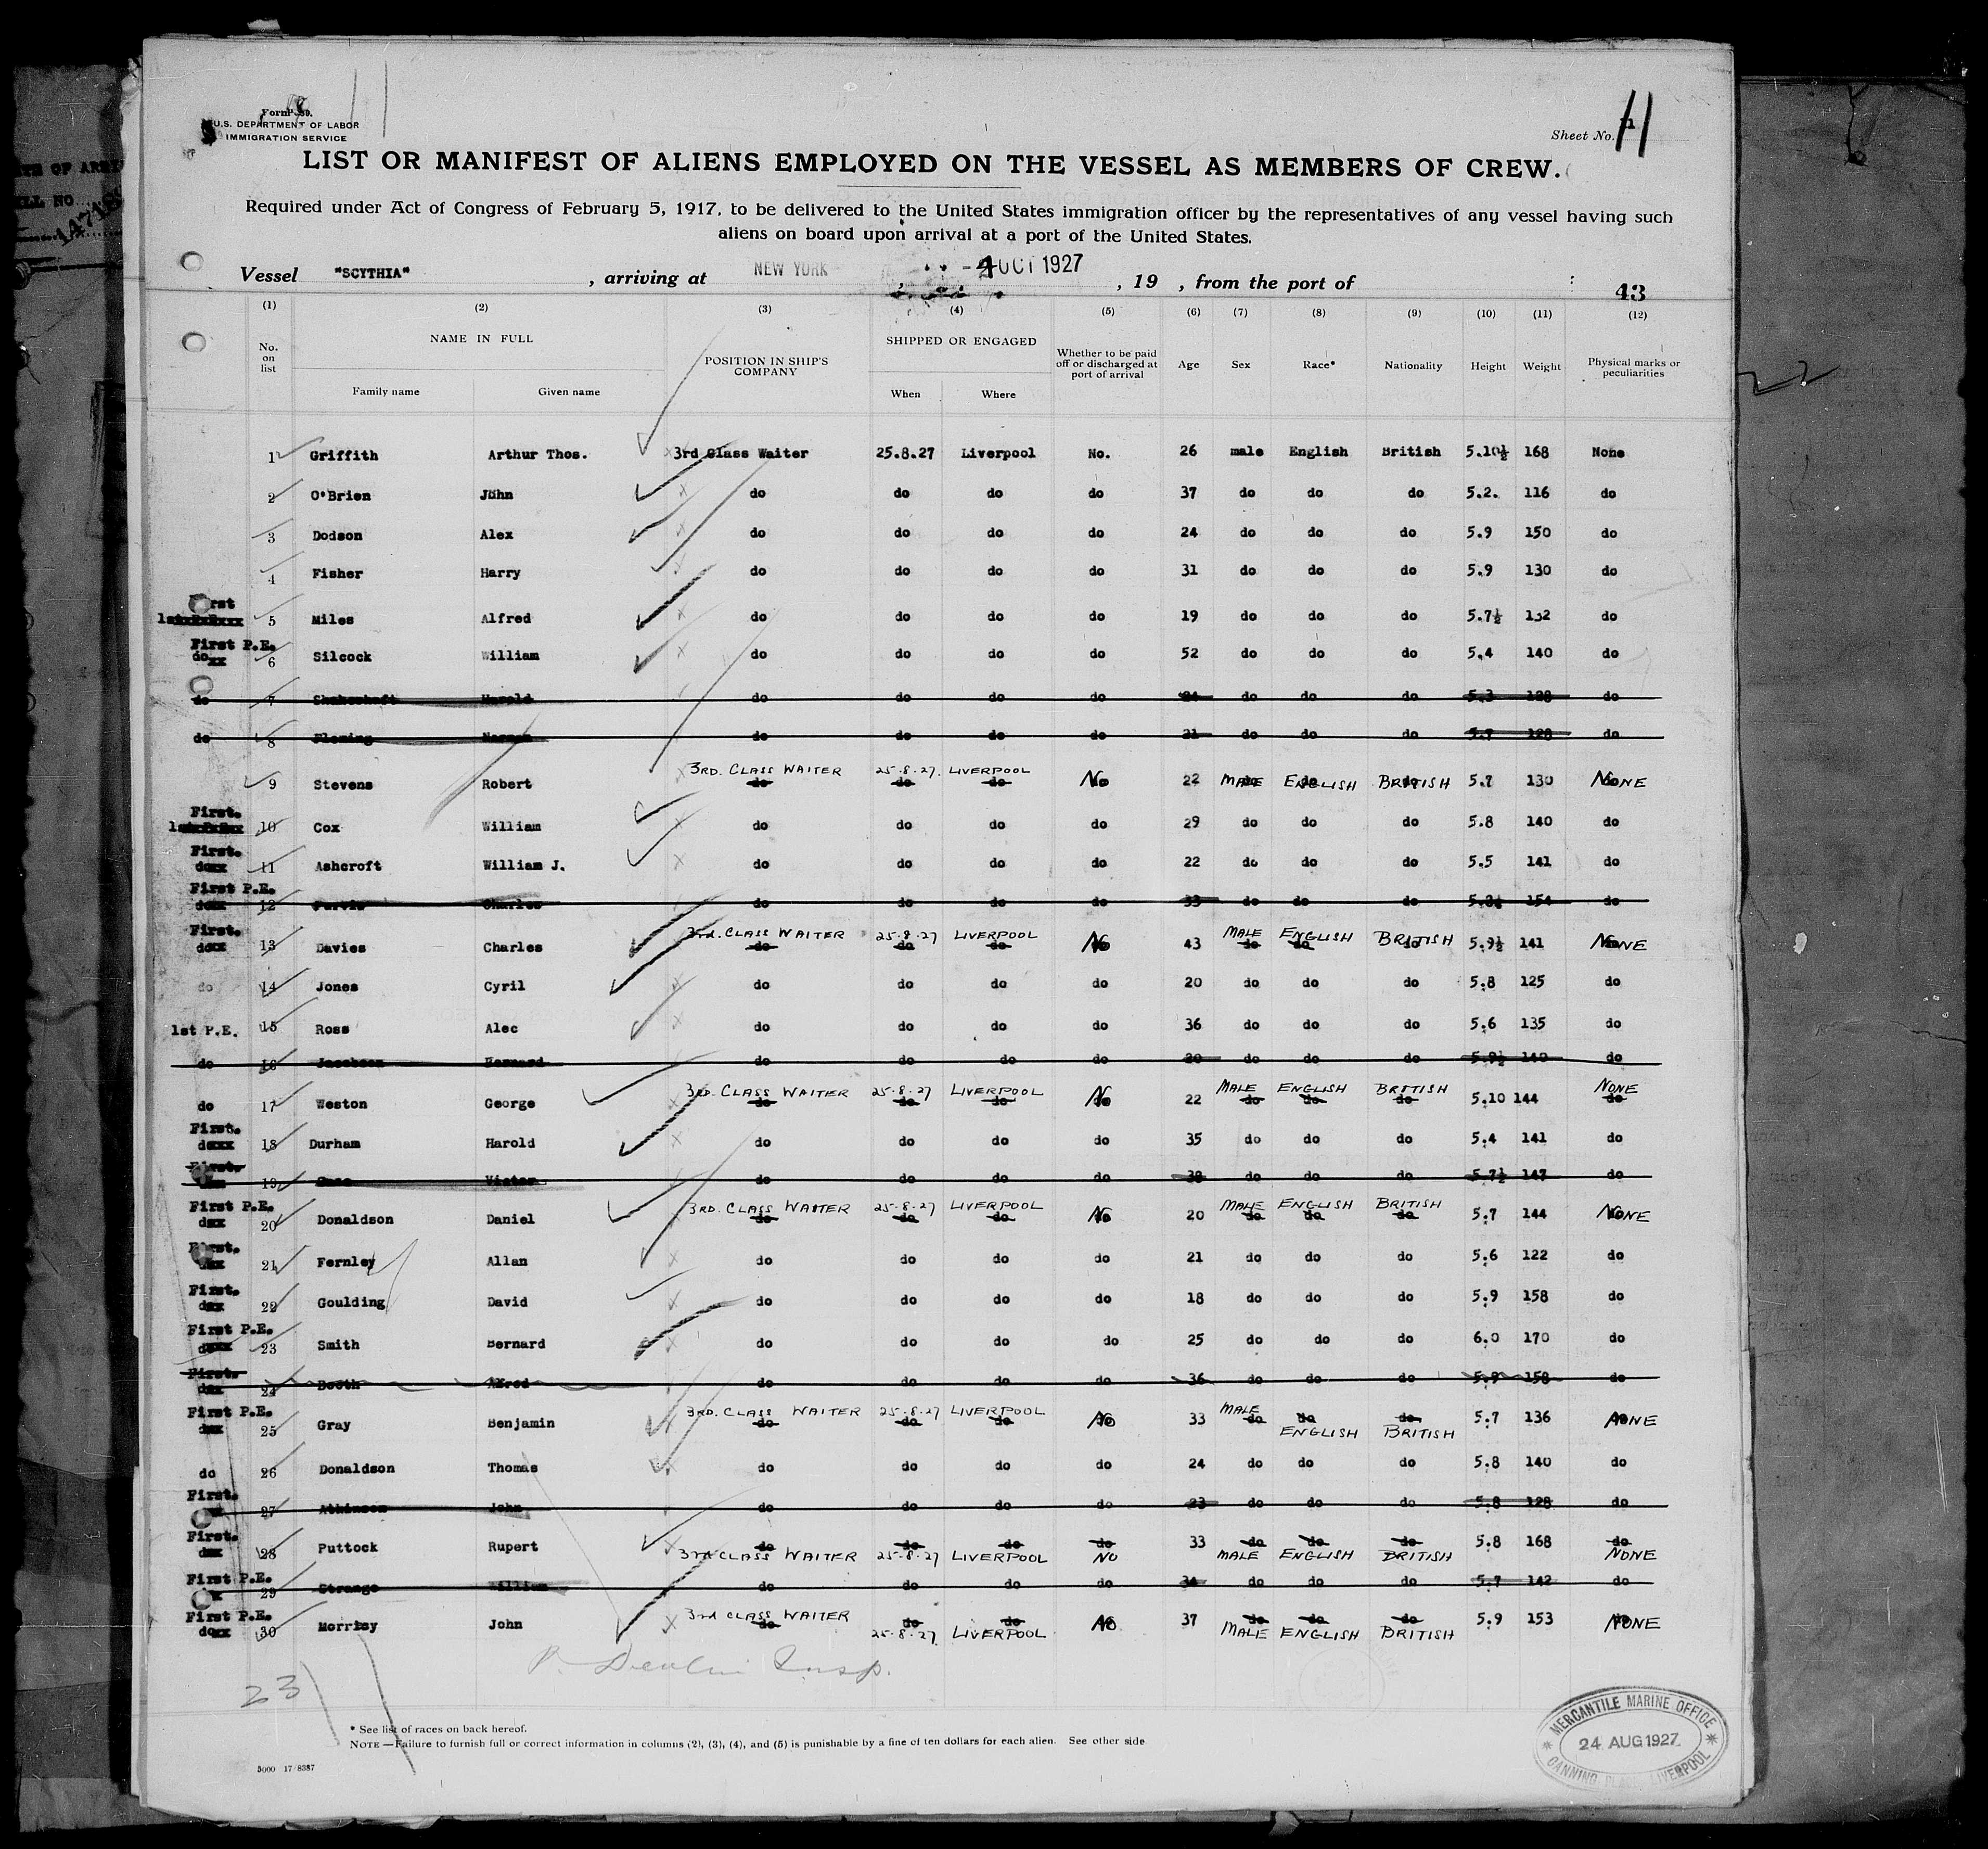 Form
U.S. DEPARTMENT OF LABOR
IMMIGRATION SERVICE
Sheet No. 11
LIST OR MANIFEST OF ALIENS EMPLOYED ON THE VESSEL AS MEMBERS OF CREW.
Required under Act of Congress of February 5, 1917, to be delivered to the United States immigration officer by the representatives of any vessel having such
aliens on board upon arrival at a port of the United States.
Vessel "SCYTHIA" , arriving at NEW YORK , -4 OCT 1927 , 19 , from the port of
43
(1) (2) (3) (4) (5) (6) (7) (8) (9) (10) (11) (12)
No. on list NAME IN FULL Family name Given name POSITION IN SHIP'S COMPANY SHIPPED OR ENGAGED When Where Whether to be paid off or discharged at port of arrival Age Sex Race* Nationality Height Weight Physical marks or peculiarities
1 Griffith Arthur Thos. 3rd Class Waiter 25.8.27 Liverpool No. 26 male English British 5.10½ 168 None
2 O'Brien John do do do do 37 do do do 5.2. 116 do
3 Dodson Alex do do do do 24 do do do 5.9 150 do
4 Fisher Harry do do do do 31 do do do 5.9 130 do
First
5 Miles Alfred do do do do 19 do do do 5.7½ 132 do
First P.E.
do 6 Silcock William do do do do 52 do do do 5.4 140 do
do 7 Shakeshaft Harold do do do do do do do 5.3 128 do
do 8 Fleming Norman do do do do 21 do do do 5.7 128 do
9 Stevens Robert 3RD. CLASS WAITER 25.8.27. LIVERPOOL No 22 MALE ENGLISH BRITISH 5.7 130 NONE
First.
10 Cox William do do do do 29 do do do 5.8 140 do
First.
11 Ashcroft William J. do do do do 22 do do do 5.5 141 do
First P.E.
12 Charles do do do do 33 do do do 154 do
First.
13 Davies Charles 3rd. CLASS WAITER 25.8.27 LIVERPOOL No 43 MALE ENGLISH BRITISH 5.9½ 141 NONE
do 14 Jones Cyril do do do do 20 do do do 5.8 125 do
1st P.E. 15 Ross Alec do do do do 36 do do do 5.6 135 do
do 16 Jacobson Bernard do do do do 20 do do do 5.9½ 140 do
do 17 Weston George 3RD. CLASS WAITER 25.8.27 LIVERPOOL No 22 MALE ENGLISH BRITISH 5.10 144 NONE
First.
18 Durham Harold do do do do 35 do do do 5.4 141 do
First.
19 Victor do do do do 38 do do do 5.7½ 147 do
First P.E.
20 Donaldson Daniel 3RD. CLASS WAITER 25.8.27 LIVERPOOL No 20 MALE ENGLISH BRITISH 5.7 144 NONE
First.
21 Fernley Allan do do do do 21 do do do 5.6 122 do
First.
22 Goulding David do do do do 18 do do do 5.9 158 do
First P.E.
23 Smith Bernard do do do do 25 do do do 6.0 170 do
First.
24 Booth Alfred do do do do 36 do do do 5.9 158 do
First P.E.
25 Gray Benjamin 3RD. CLASS WAITER 25.8.27 LIVERPOOL NO 33 MALE ENGLISH BRITISH 5.7 136 NONE
do 26 Donaldson Thomas do do do do 24 do do do 5.8 140 do
First.
27 Atkinson John do do do do 23 do do do 5.8 128 do
First.
28 Puttock Rupert 3rd CLASS WAITER 25.8.27 LIVERPOOL NO 33 MALE ENGLISH BRITISH 5.8 168 NONE
First P.E.
29 Strange William do do do do 34 do do do 5.7 142 do
First P.E.
30 Morrisy John 3rd CLASS WAITER 25.8.27 LIVERPOOL NO 37 MALE ENGLISH BRITISH 5.9 153 NONE
P. Devlin Insp.
23
* See list of races on back hereof.
NOTE.—Failure to furnish full or correct information in columns (2), (3), (4), and (5) is punishable by a fine of ten dollars for each alien. See other side
5000 17/8387
MERCANTILE MARINE OFFICE
24 AUG 1927
CANNING PLACE LIVERPOOL